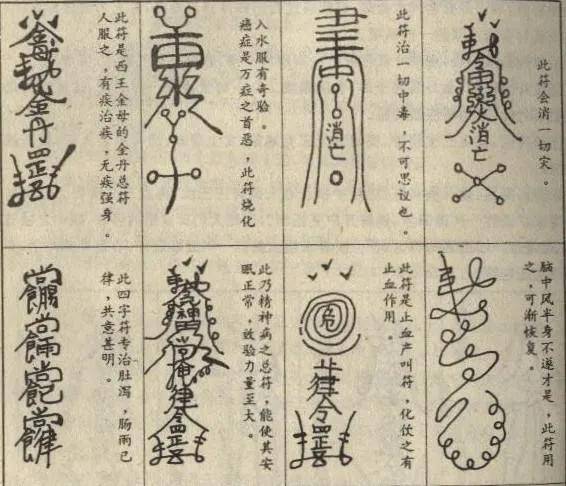 此符会消一切灾。
消亡
此符治一切中毒，不可思议也。
消亡
癌症是万症之首恶，此符烧化
入水服有奇验。
此符是西王金母的金丹总符
人服之，有疾治疾，无疾强身。
金丹
脑中风半身不遂才是，此符用
之，可渐恢复。
此符是止血产叫符，化饮之有
止血作用。
危
律令
此乃精神病之总符，能使其安
眼正常。效验力量至大。
律令
此四字符专治肚泻，肠雨已
律，共意甚明。